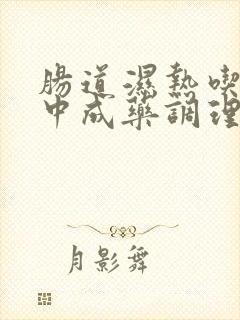 腸道濕熱喫
中成藥調理
月影舞